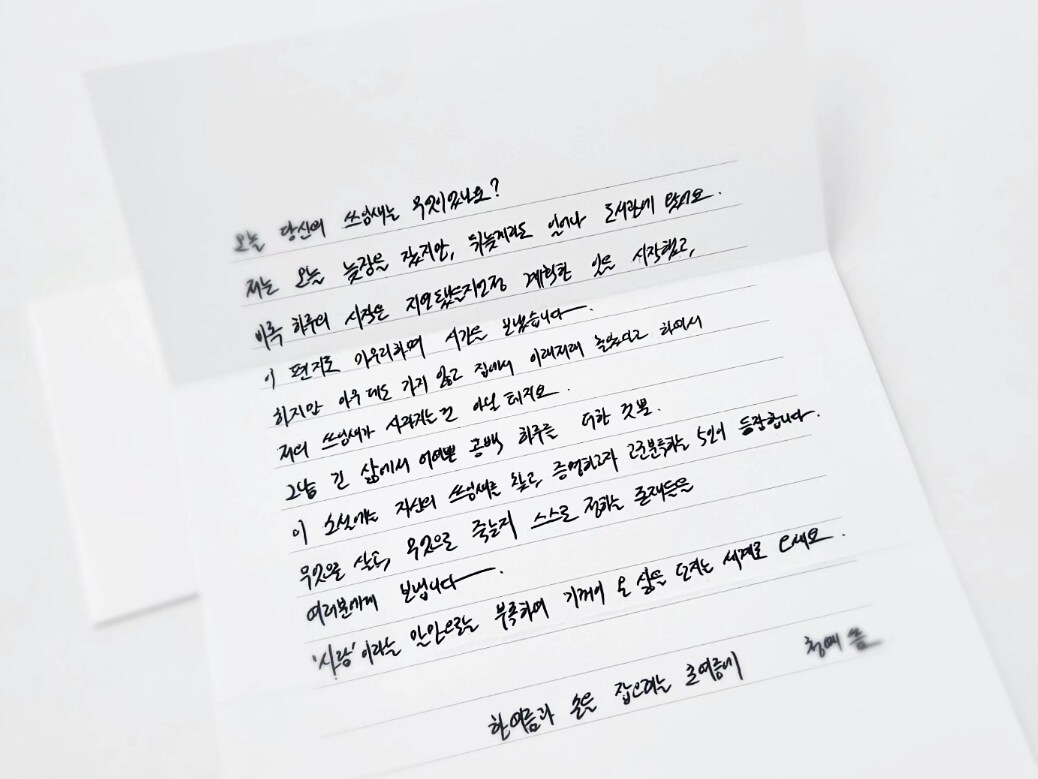 오늘 당신의 쓰임새는 무엇이었나요?
저는 오늘 늦잠을 잤지만, 뒤늦게라도 일어나 도서관에 왔어요.
비록 하루의 시작은 지연됐을지언정 계획한 일을 시작했고,
이 편지로 마무리하며 시간을 보냈습니다.
하지만 아무 데도 가지 않고 집에서 이래저래 놀았다고 하여서
저의 쓰임새가 사라지는 건 아닐 테지요.
그냥 긴 삶에서 어여쁜 공백 하루를 더한 것뿐.
이 소설에는 자신의 쓰임새를 찾고, 증명하고자 고군분투하는 5인이 등장합니다.
무엇으로 살고, 무엇으로 죽는지 스스로 정하는 존재들을
여러분에게 보냅니다.
'사랑'이라는 말만으로는 부족하여 기꺼이 온 삶을 던지는 세계로 오세요.
한여름과 손을 잡으려는 초여름에
청예 씀